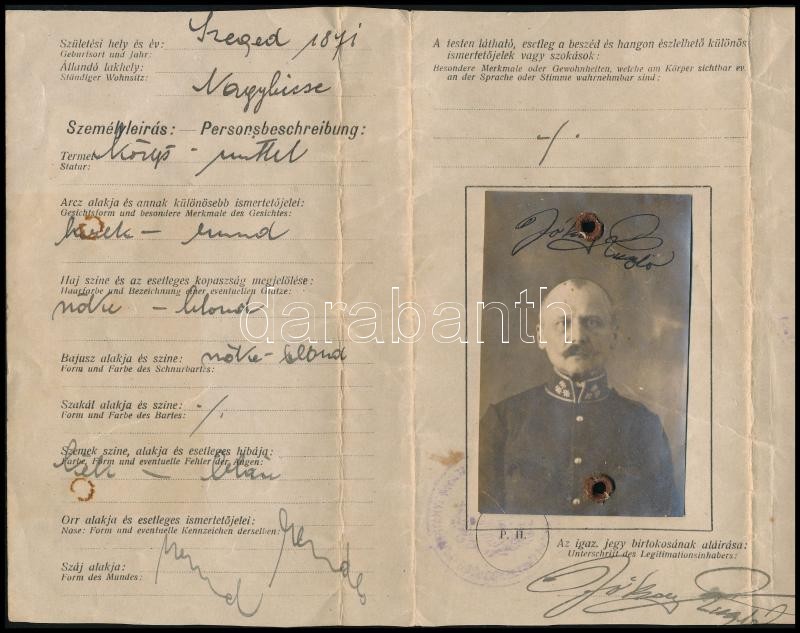 Születési hely és év: Szeged 1871
Geburtsort und Jahr:
Állandó lakhely:
Ständiger Wohnsitz: Nagybicse
Személyleirás: — Personsbeschreibung:
Termet: közép - mittel
Statur:
Arcz alakja és annak különösebb ismertetőjelei:
Gesichtsform und besondere Merkmale des Gesichtes:
kerek - rund
Haj szine és az esetleges kopaszság megjelölése:
Haarfarbe und Bezeichnung einer eventuellen Glatze:
szőke - blond
Bajusz alakja és szine: szőke - blond
Form und Farbe des Schnurbartes:
Szakál alakja és szine: ·/.
Form und Farbe des Bartes:
Szemek szine, alakja és esetleges hibája:
Farbe, Form und eventuelle Fehler der Augen:
kék - blau
Orr alakja és esetleges ismertetőjelei: rendes
Nase: Form und eventuelle Kennzeichen derselben:
Száj alakja: rend
Form des Mundes:
A testen látható, esetleg a beszéd és hangon észlelhető különös
ismertetőjelek vagy szokások:
Besondere Merkmale oder Gewohnheiten, welche am Körper sichtbar ev.
an der Sprache oder Stimme wahrnehmbar sind:
·/.
Jókay
darabanth
P. H.
Az igaz. jegy birtokosának aláírása:
Unterschrift des Legitimationsinhabers:
Jókay